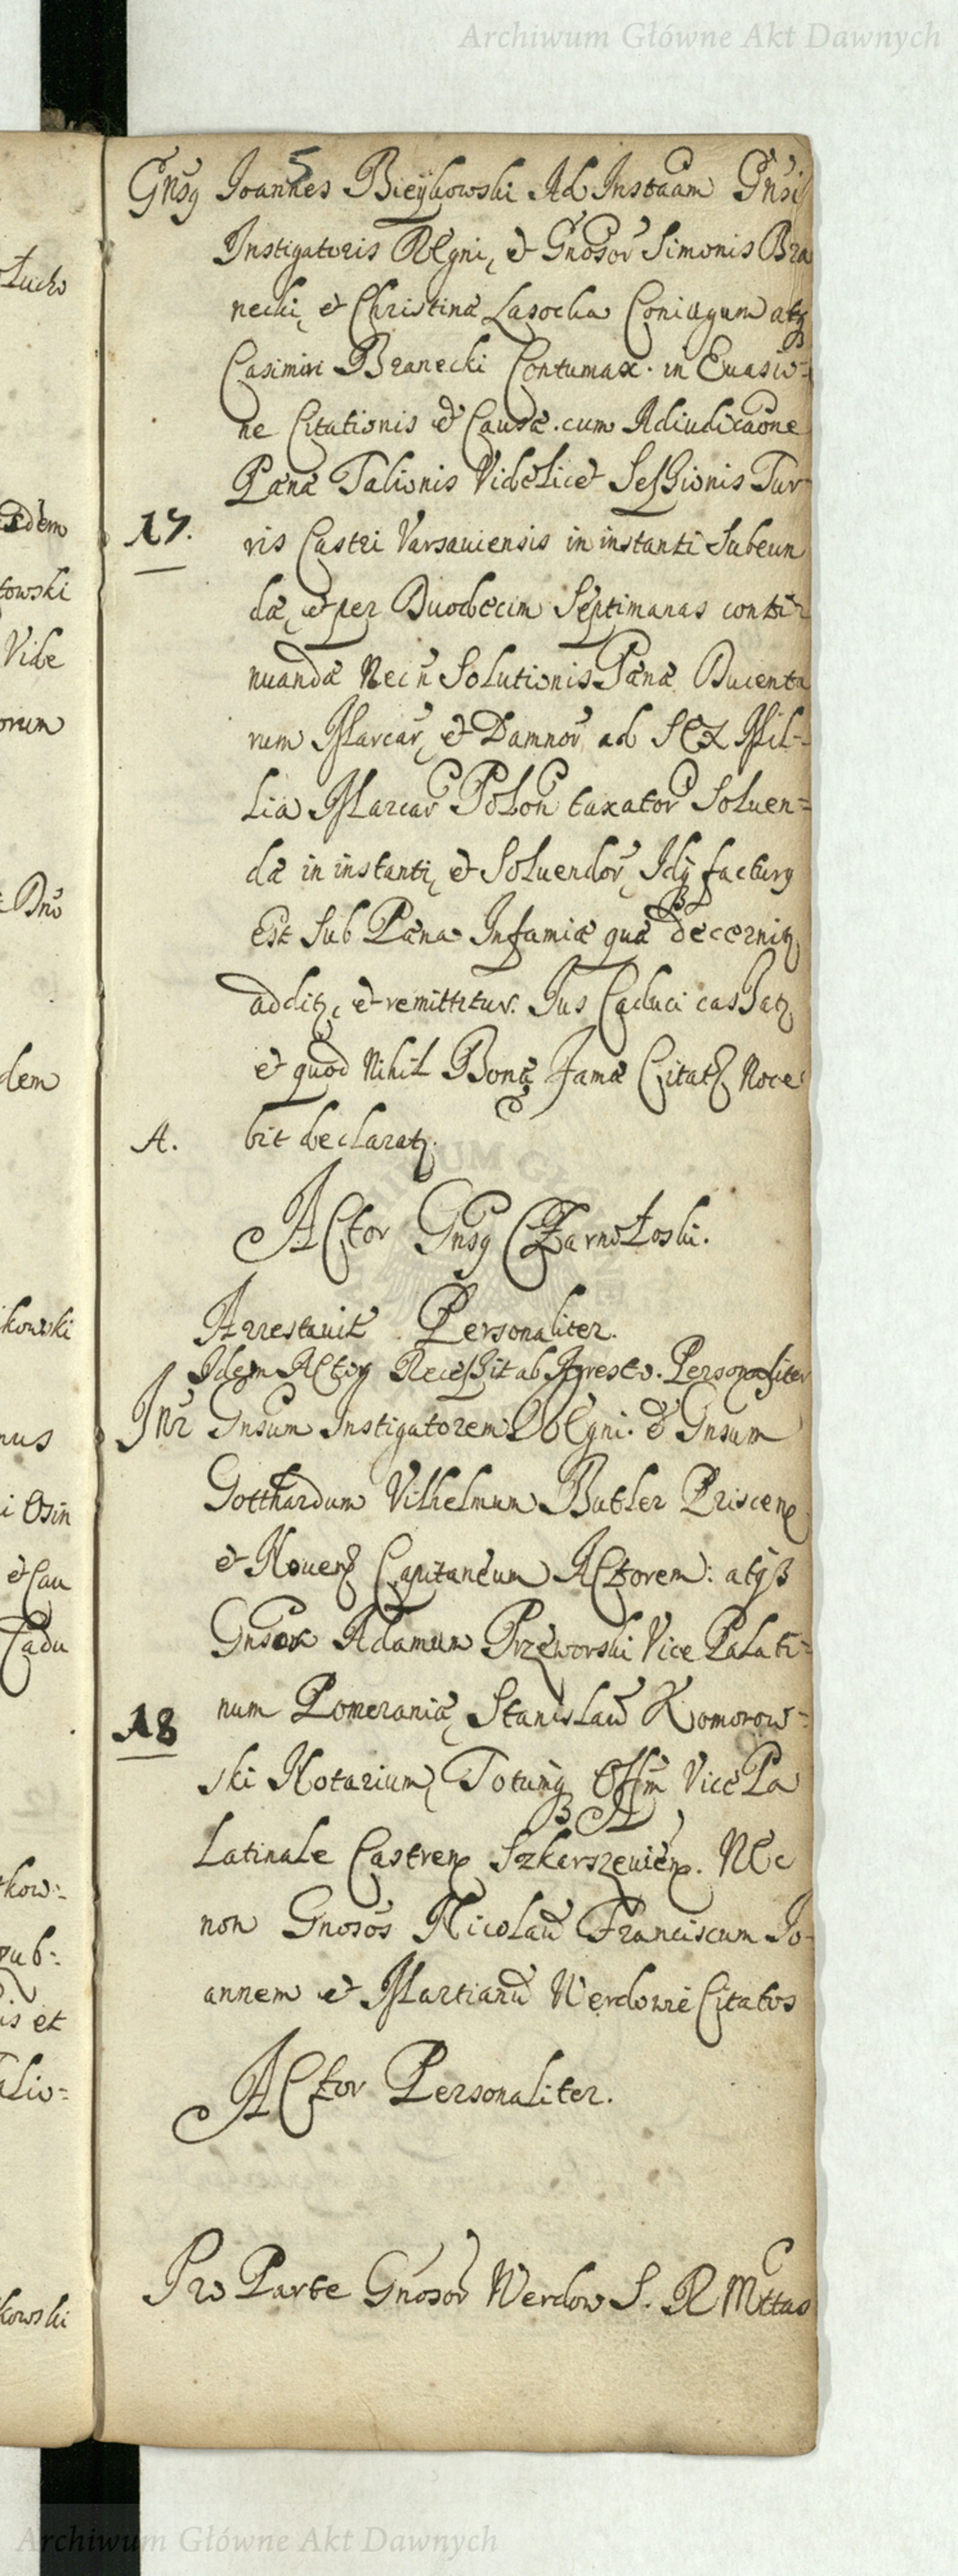 Archiwum Główne Akt Dawnych
5
Gnsg Joannes Bieykowski Ad Instãam Gnsi
Instigatoris Regni, et Gnosor̃ Simonis Bra
necki, et Christinæ Lasocka Coniugum atq
Casimiri Branecki Contumax. in Euasio=
ne Citationis et Causæ. cum Adiudicãone
Pænæ Talionis Videlicet Sessionis Tur=
17.
ris Castri Varsauiensis in instanti Subeun
dæ, et per Duodecim Septimanas conti=
nuandæ Necñ Solutionis Pænæ Ducenta
rum Marcar̃, et Damnor̃ ad Sex Mil=
lia Marcar̃ Poloñ taxator̃ Soluen=
dæ in instanti, et Soluendor̃, Idq facturg
est Sub Pæna Infamiæ quæ decernit,
addit, et remittitur. Jus Caduci cassat,
et quod Nihil Bonæ Famæ Citat Noce
A.
bit declarat.
Actor Gnsg Czarnołoski.
Arrestauit Personaliter.
Idem Actor Recessit ab Aresto. Personaliter
Inr̃ Gnsum Instigatorem Regni. et Gnsum
Gotthardum Vilhelmum Butler Priscen
et Nouen Capitaneum Actorem: atq
Gnsos Adamum Przeworski Vice Palati=
18
num Pomeraniæ, Stanislaũ Komorow=
ski Notarium, Totumq Offm Vice Pa
latinale Castren Szkarszeuien. Nec
non Gnosos Nicolaũ Franciscum Jo=
annem et Martianũ Werdowie Citatos
Actor Personaliter.
Pro Parte Gnosor̃ Werdow S. R Mttas
Łucko
towski
Vide
orum
dem
ikowski
nus
i Osin
et Cau
Cadu
kow:
pub:
is et
alio=
kowski
Archiwum Główne Akt Dawnych